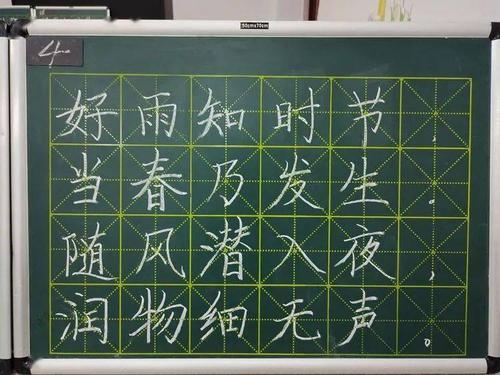 50cmx70cm
4
好雨知时节，
当春乃发生。
随风潜入夜，
润物细无声。